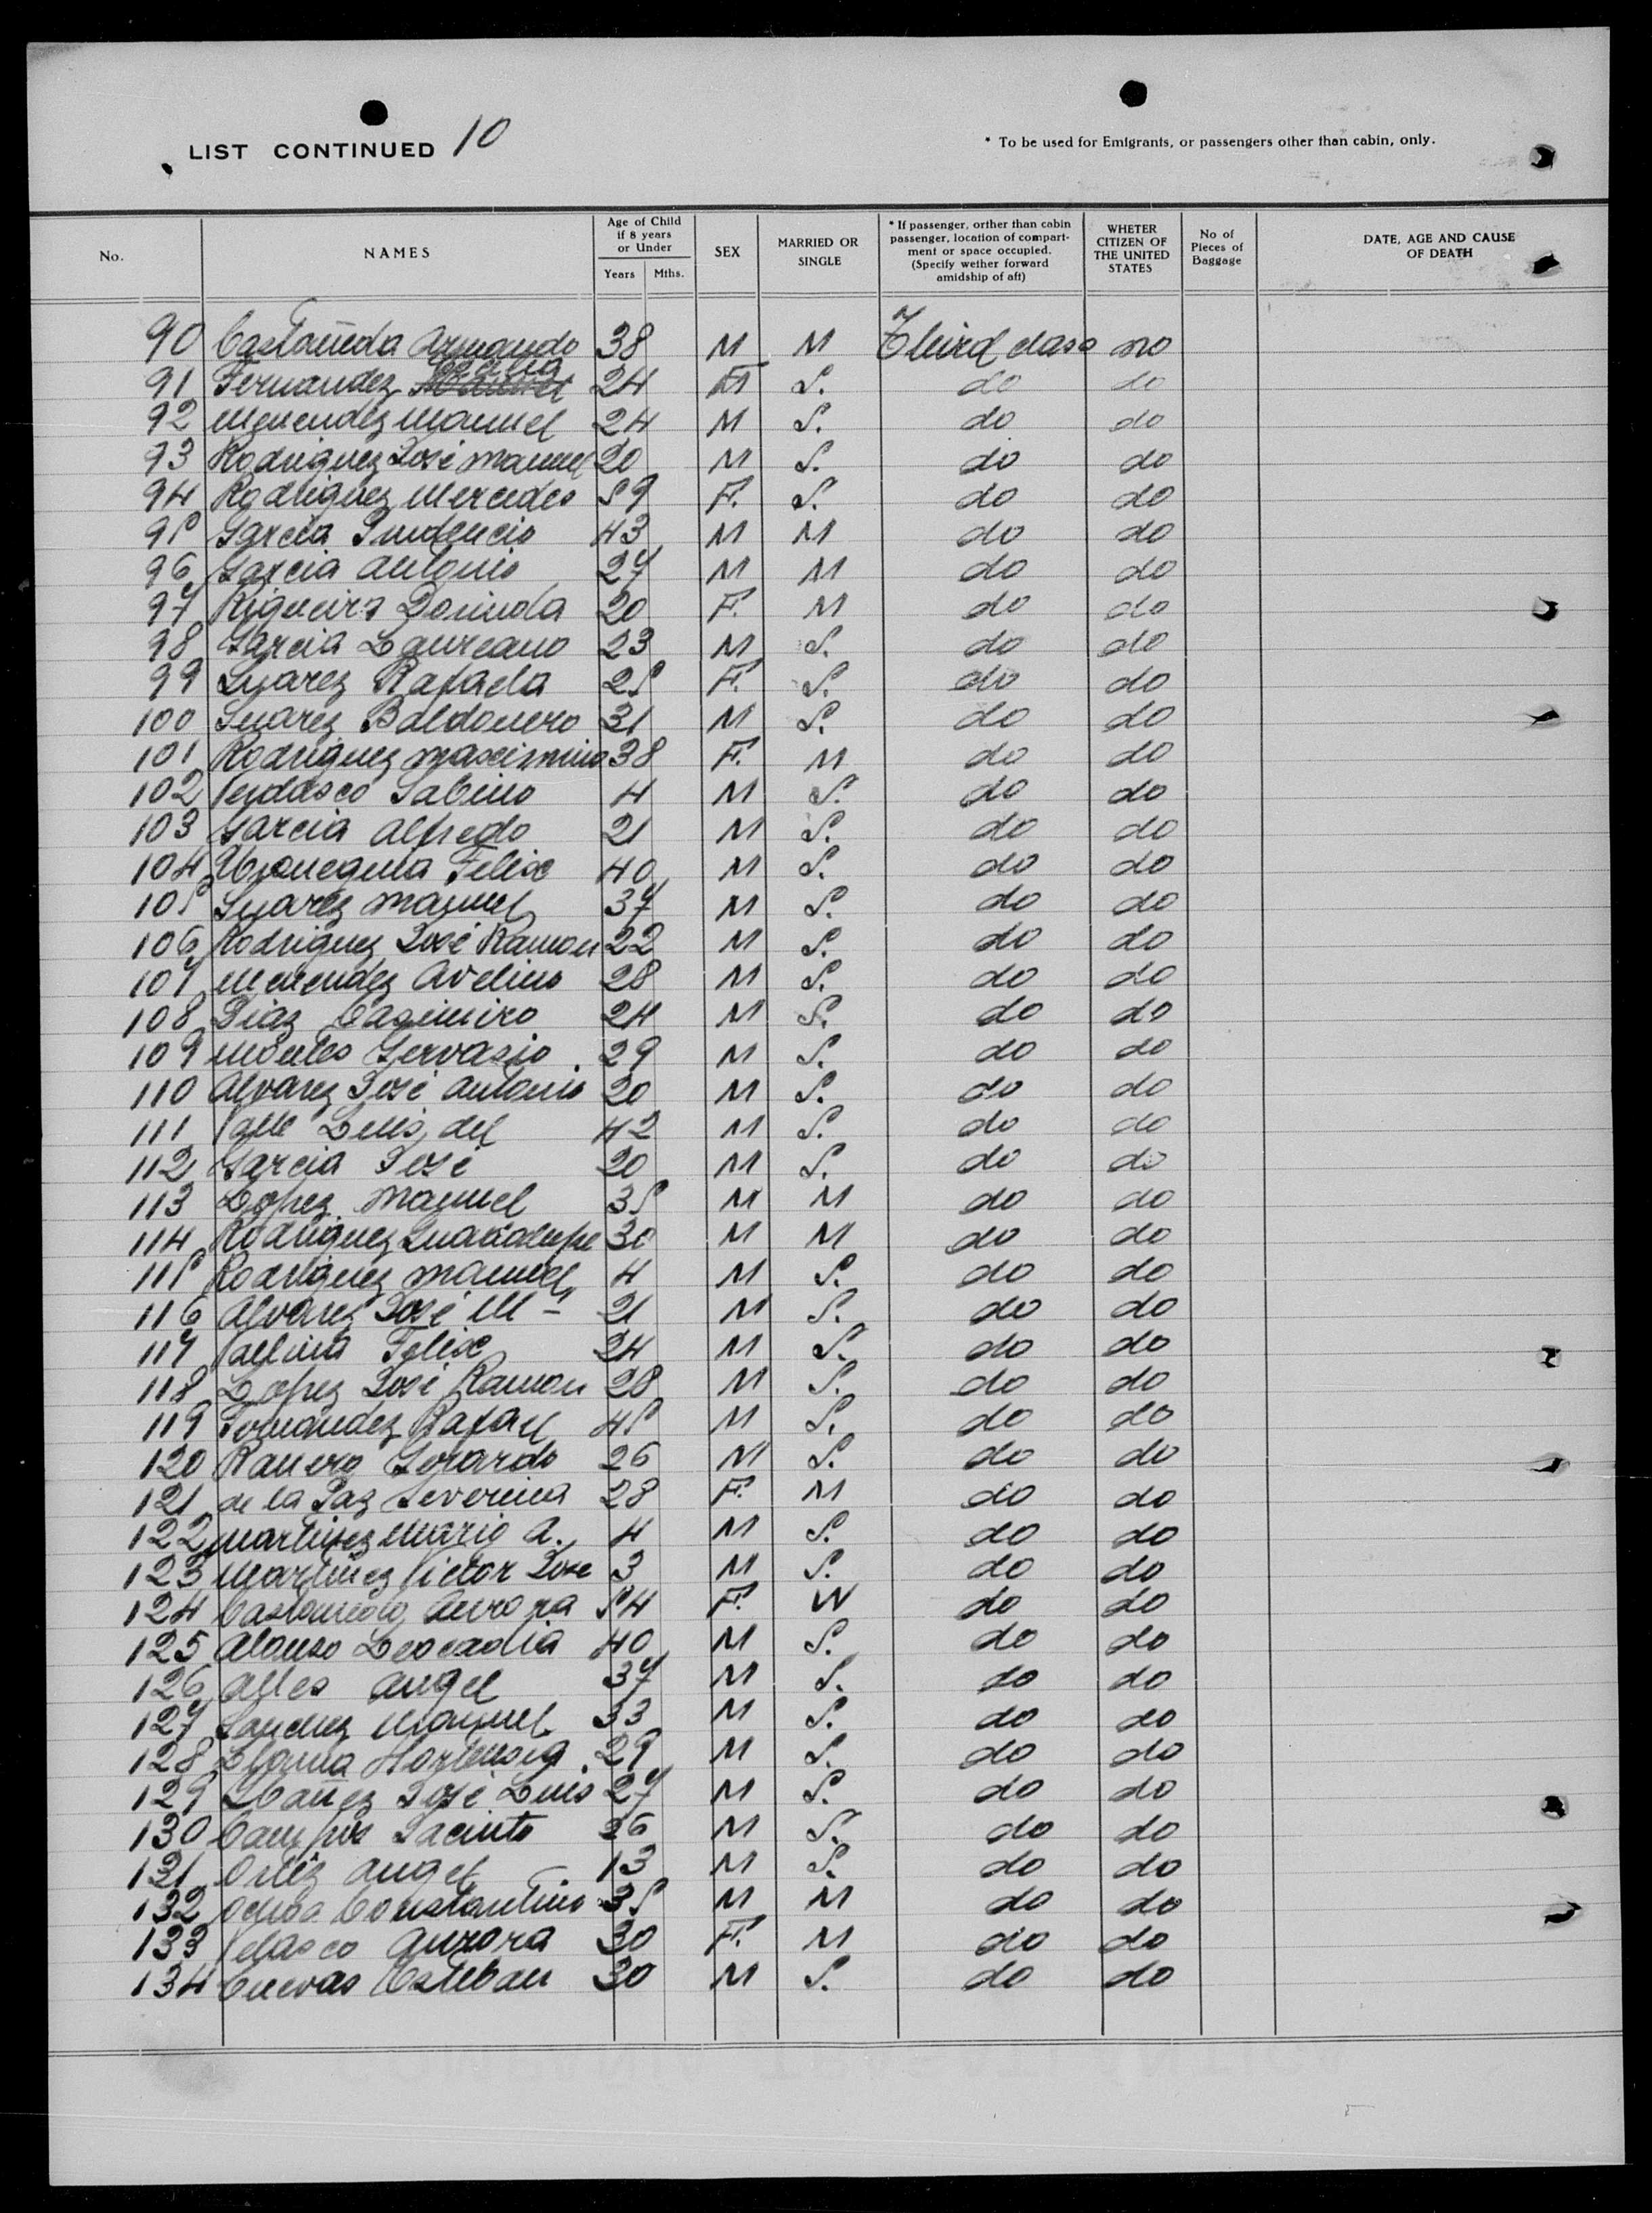 LIST CONTINUED 10
* To be used for Emigrants, or passengers other than cabin, only.
No. NAMES Age of Child if 8 years or Under Years Mths. SEX MARRIED OR SINGLE * If passenger, orther than cabin passenger, location of compartment or space occupied. (Specify wether forward amidship of aft) WHETER CITIZEN OF THE UNITED STATES No of Pieces of Baggage DATE, AGE AND CAUSE OF DEATH
90 Castañeda Armando 38 M M Third class no
91 Fernandez 24 S. do do
92 Menendez Manuel 24 M S. do do
93 Rodriguez José Manuel 20 M S. do do
94 Rodriguez Mercedes 59 F. S. do do
95 Garcia Prudencio 43 M M do do
96 Garcia Antonio 27 M M do do
97 Rigueira Dorinda 20 F. M do do
98 Garcia Laureano 23 M S. do do
99 Suarez Rafaela 25 F. S. do do
100 Suarez Baldomero 31 M S. do do
101 Rodriguez Maximino 38 F. M do do
102 Verdasco Sabino 4 M S. do do
103 Garcia Alfredo 21 M S. do do
104 Felix 40 M S. do do
105 Suarez Manuel 37 M S. do do
106 Rodriguez José Ramon 22 M S. do do
107 Menendez Avelino 28 M S. do do
108 Diaz Casimiro 24 M S. do do
109 Montes Gervasio 29 M S. do do
110 Alvarez José Antonio 20 M S. do do
111 Valle Luis del 42 M S. do do
112 Garcia José 20 M S. do do
113 Lopez Manuel 35 M M do do
114 Rodriguez Guadalupe 30 M M do do
115 Rodriguez Manuel 4 M S. do do
116 Alvarez José Mª 21 M S. do do
117 Vallina Felix 24 M S. do do
118 Lopez José Ramon 28 M S. do do
119 Fernandez Rafael 45 M S. do do
120 Ranero Gerardo 26 M S. do do
121 de la Paz Severina 28 F. M do do
122 Martinez Mario A. 4 M S. do do
123 Martinez Victor Jose 3 M S. do do
124 Aurora 54 F. W do do
125 Alonso Leocadia 40 M S. do do
126 Alles Angel 37 M S. do do
127 Sanchez Manuel 33 M S. do do
128 Hortensia 29 M S. do do
129 Ibañez José Luis 27 M S. do do
130 Campos Jacinto 26 M S. do do
131 Ortiz Angel 13 M S. do do
132 Ochoa Constantino 35 M M do do
133 Velasco Aurora 30 F. M do do
134 Cuevas Esteban 30 M S. do do